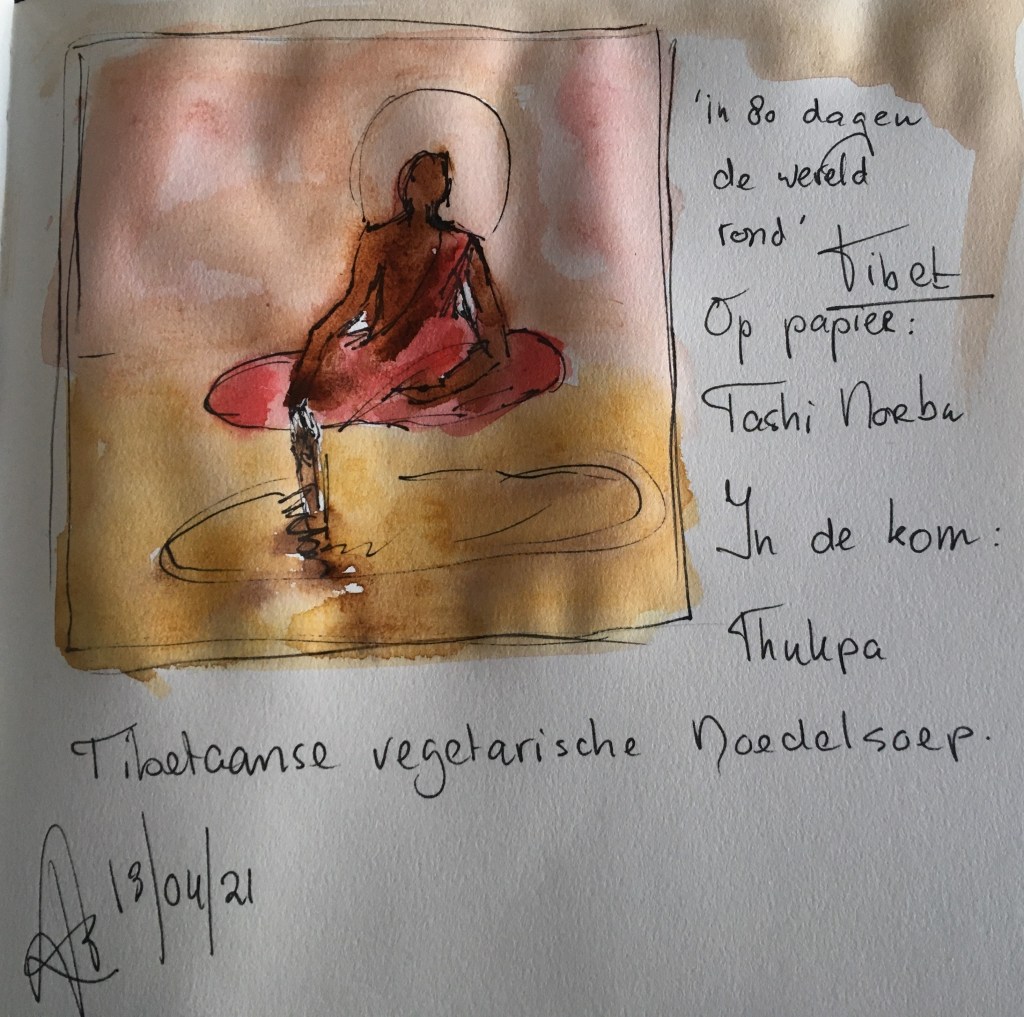 'in 80 dagen
de wereld
rond'
Tibet
Op papier:
Tashi Norbu
In de kom:
Thukpa
Tibetaanse vegetarische Noedelsoep.
13/04/21